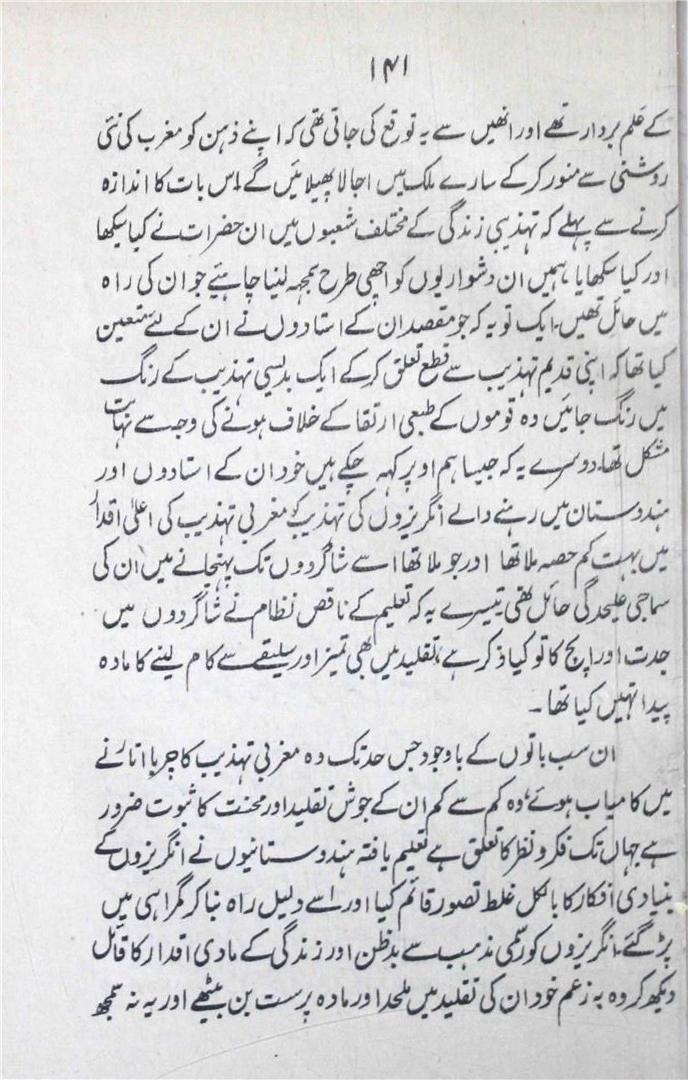 ۱۴۱
کے علم بردار تھے اور انھیں سے یہ توقع کی جاتی تھی کہ اپنے ذہن کو مغرب کی نئی
روشنی سے منور کرکے سارے ملک میں اجالا پھیلائیں گے۔ اس بات کا اندازہ
کرنے سے پہلے کہ تہذیبی زندگی کے مختلف شعبوں میں ان حضرات نے کیا سیکھا
اور کیا سکھایا، ہمیں ان دشواریوں کو اچھی طرح سمجھ لینا چاہیے جو ان کی راہ
میں حائل تھیں۔ ایک تو یہ کہ جو مقصد ان کے استادوں نے ان کے لئے متعین
کیا تھا کہ اپنی قدیم تہذیب سے قطع تعلق کرکے ایک بدیسی تہذیب کے رنگ
میں رنگ جائیں وہ قوموں کے طبعی ارتقا کے خلاف ہونے کی وجہ سے نہایت
مشکل تھا۔ دوسرے یہ کہ جیسا ہم اوپر کہہ چکے ہیں خود ان کے استادوں اور
ہندوستان میں رہنے والے انگریزوں کی تہذیب کو مغربی تہذیب کی اعلیٰ اقدار
میں بہت کم حصہ ملا تھا اور جو ملا تھا اسے شاگردوں تک پہنچانے میں ان کی
سماجی علیحدگی حائل تھی۔ تیسرے یہ کہ تعلیم کے ناقص نظام نے شاگردوں میں
جدت اور اپج کا تو کیا ذکر ہے، تقلید میں بھی تمیز اور سلیقے سے کام لینے کا مادہ
پیدا نہیں کیا تھا۔
ان سب باتوں کے باوجود جس حد تک وہ مغربی تہذیب کا چربا اتارنے
میں کامیاب ہوئے، وہ کم سے کم ان کے جوش تقلید اور محنت کا ثبوت ضرور
ہے جہاں تک فکر و نظر کا تعلق ہے تعلیم یافتہ ہندوستانیوں نے انگریزوں کے
بنیادی افکار کا بالکل غلط تصور قائم کیا اور اسے دلیل راہ بنا کر گمراہی میں
پڑ گئے۔ انگریزوں کو رسمی مذہب سے بدظن اور زندگی کے مادی اقدار کا قائل
دیکھ کر وہ بہ زعم خود ان کی تقلید میں ملحد اور مادہ پرست بن بیٹھے اور یہ نہ سمجھ